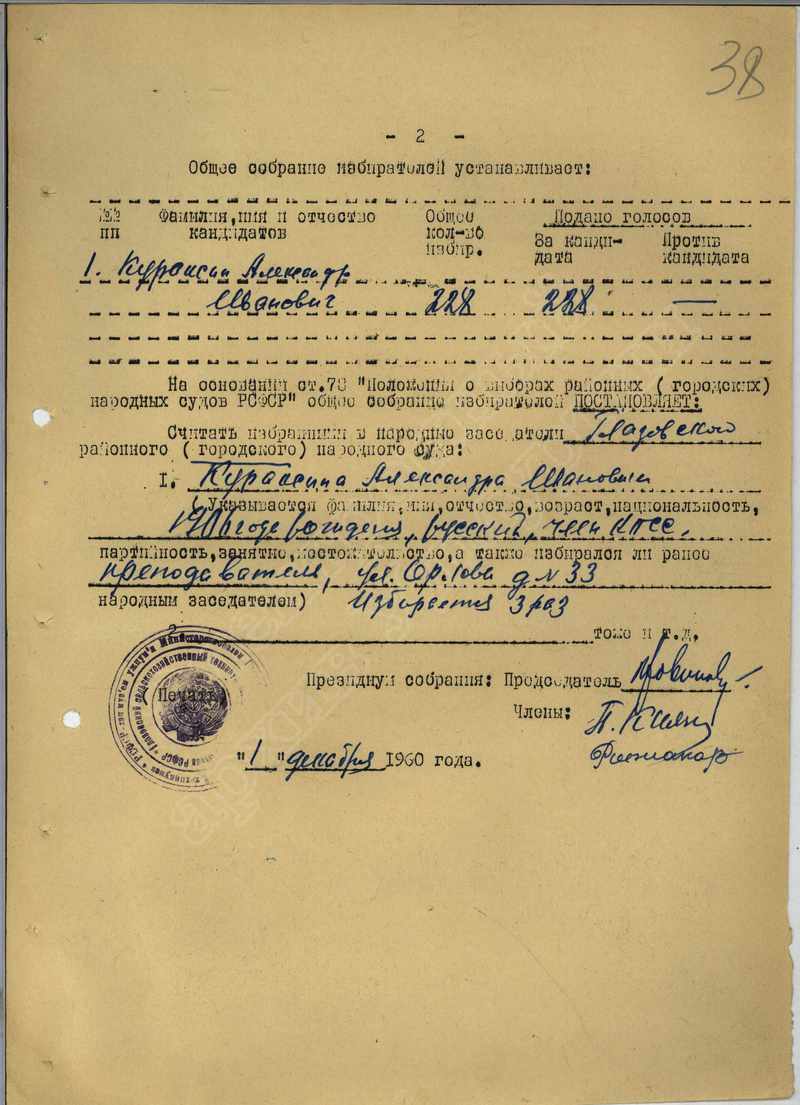 38
- 2 -
Общее собрание избирателей устанавливает:
№№ Фамилия,имя и отчество Общее Подано голосов
пп кандидатов кол-во За канди- Против
избир. дата кандидата
1. Куракин Александр
Иванович 228 228 —
На основании ст.78 "Положения о выборах районных ( городских)
народных судов РСФСР" общее собрание избирателей ПОСТАНОВЛЯЕТ:
Считать избранными в народные заседатели Глазовского
районного ( городского) народного суда:
I. Куракина Александра Ивановича
( Указывается фамилия,имя,отчество,возраст,национальность,
года рождения, русский, член КПСС.
партийность,занятие,местожительство,а также избирался ли ранее
преподаватель, ул. д № 33
народным заседателем) Избирается 3 раз
2. тоже и т.д.
Президиум собрания: Председатель
Печать
Члены:
"1" декабря 1960 года.